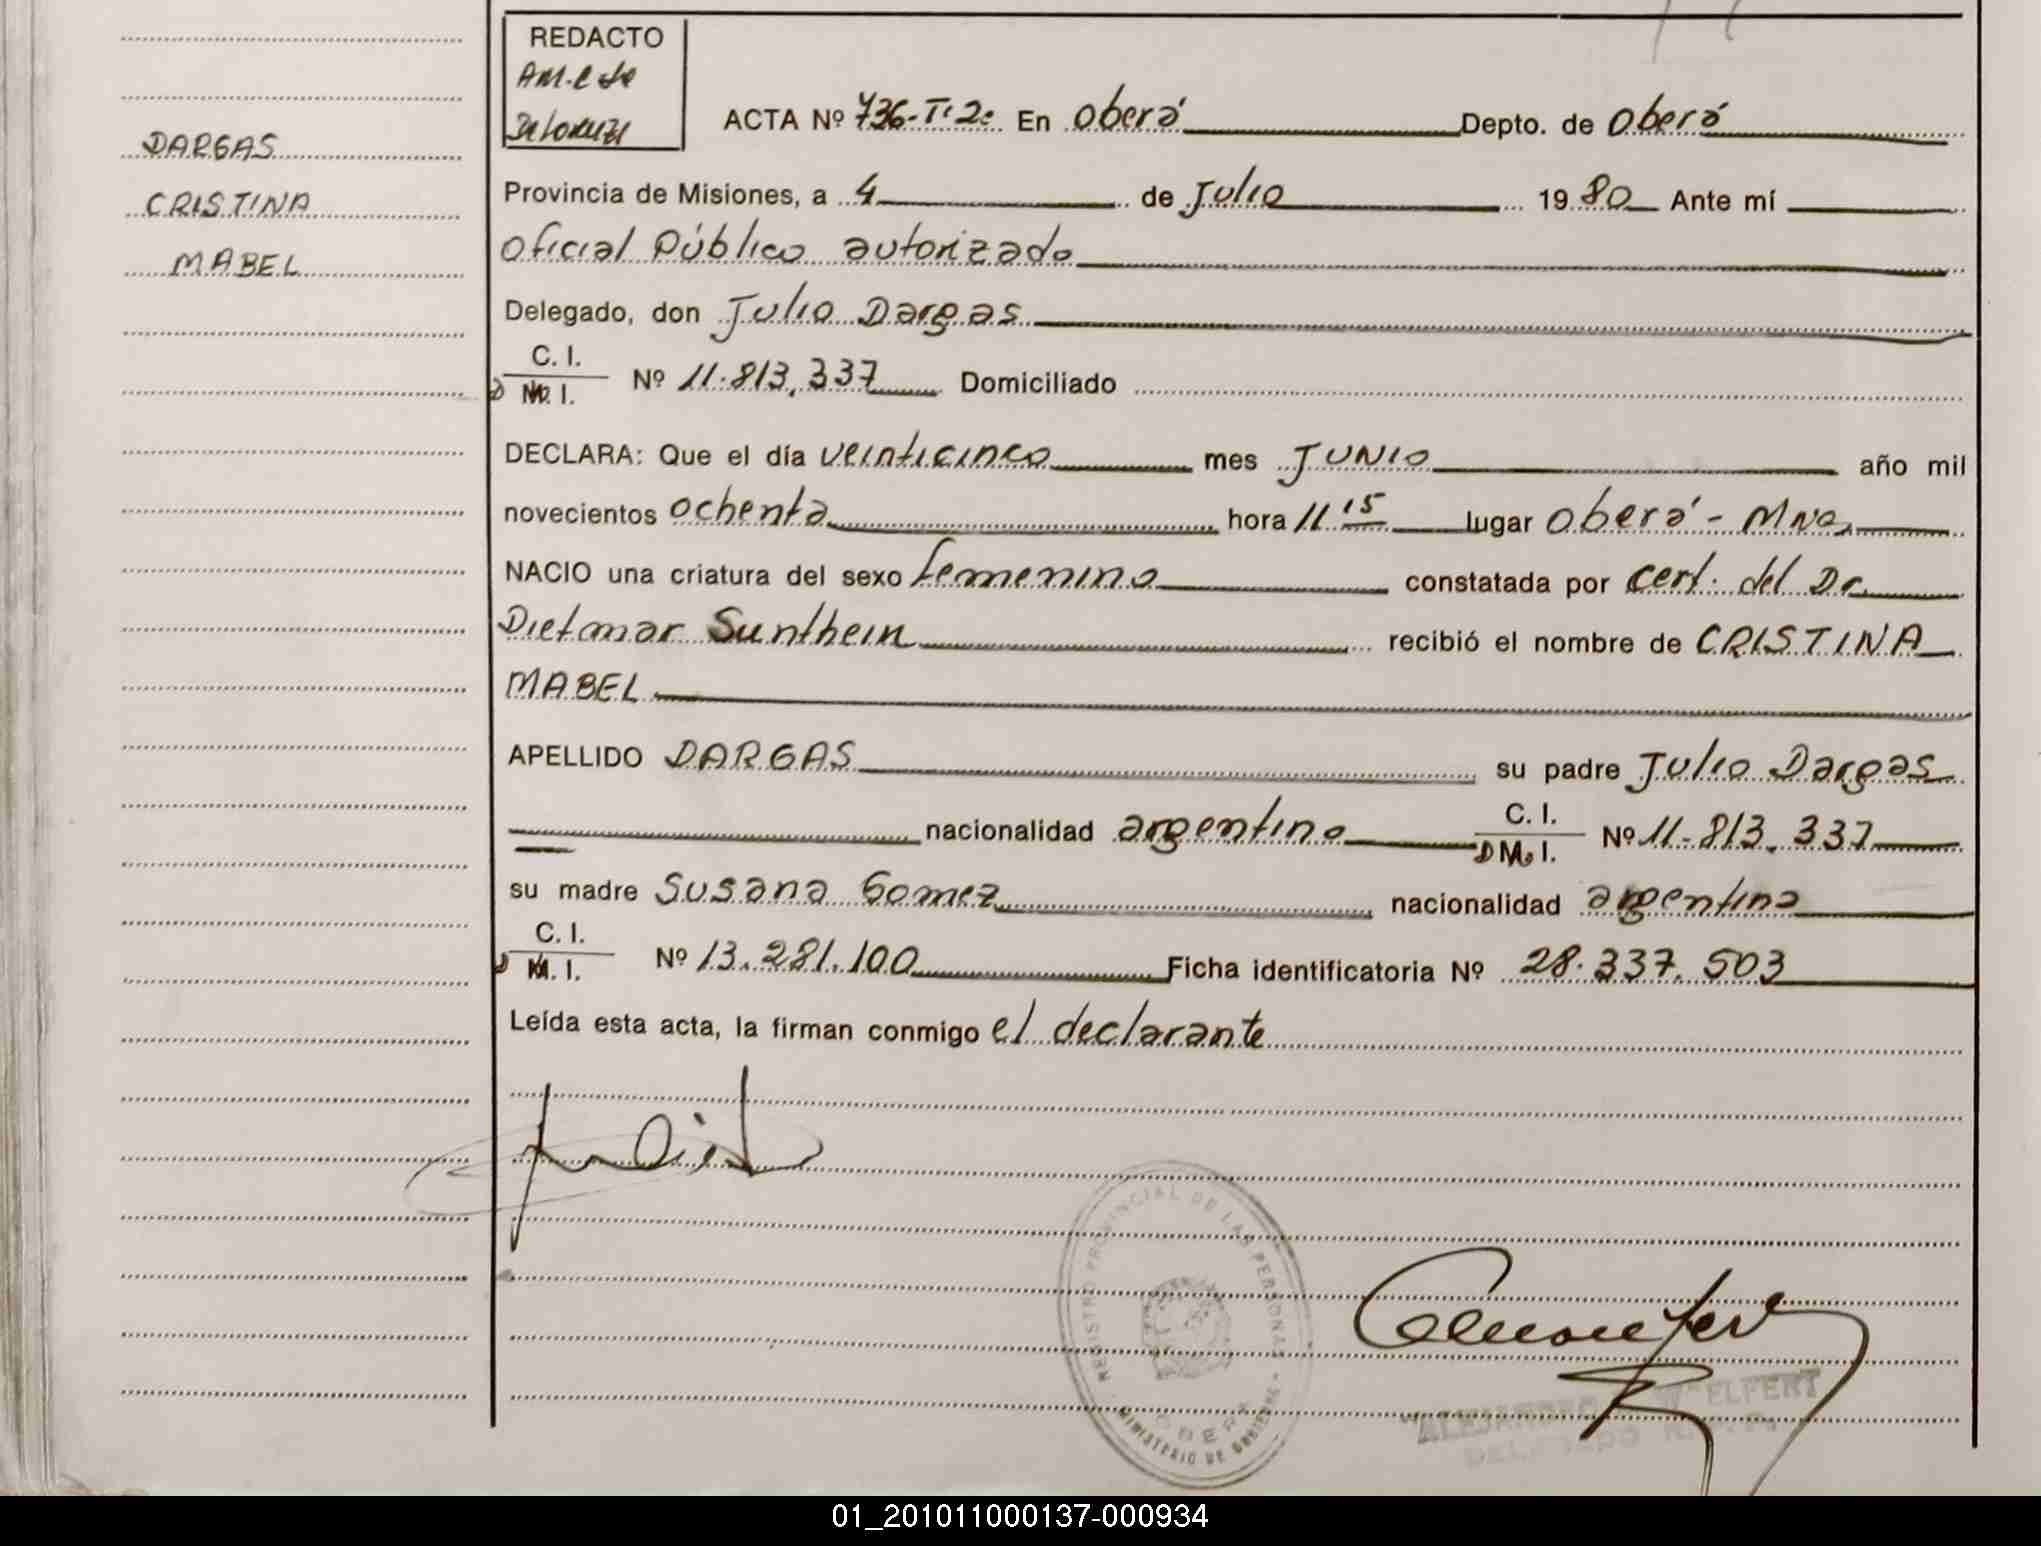 REDACTO
DARGAS
CRISTINA
MABEL
ACTA Nº 736-Tº 2º En Oberá Depto. de Oberá
Provincia de Misiones, a 4 de Julio 1980 Ante mí
Oficial Público autorizado
Delegado, don Julio Dargas
C. I.
D M. I. Nº 11.813.337 Domiciliado
DECLARA: Que el día veinticinco mes JUNIO año mil
novecientos ochenta hora 11 15 lugar Oberá - Mnes
NACIO una criatura del sexo femenino constatada por cert. del Dr.
Dietmar Sunthein recibió el nombre de CRISTINA
MABEL
APELLIDO DARGAS su padre Julio Dargas
nacionalidad argentino C. I. D M. I. Nº 11.813.337
su madre Susana Gomez nacionalidad argentina
C. I.
D M. I. Nº 13.281.100 Ficha identificatoria Nº 28.337.503
Leída esta acta, la firman conmigo el declarante
REGISTRO PROVINCIAL DE LAS PERSONAS
OBERA
MINISTERIO DE GOBIERNO
ALEJANDRO WELFERT
DELEGADO
01_201011000137-000934